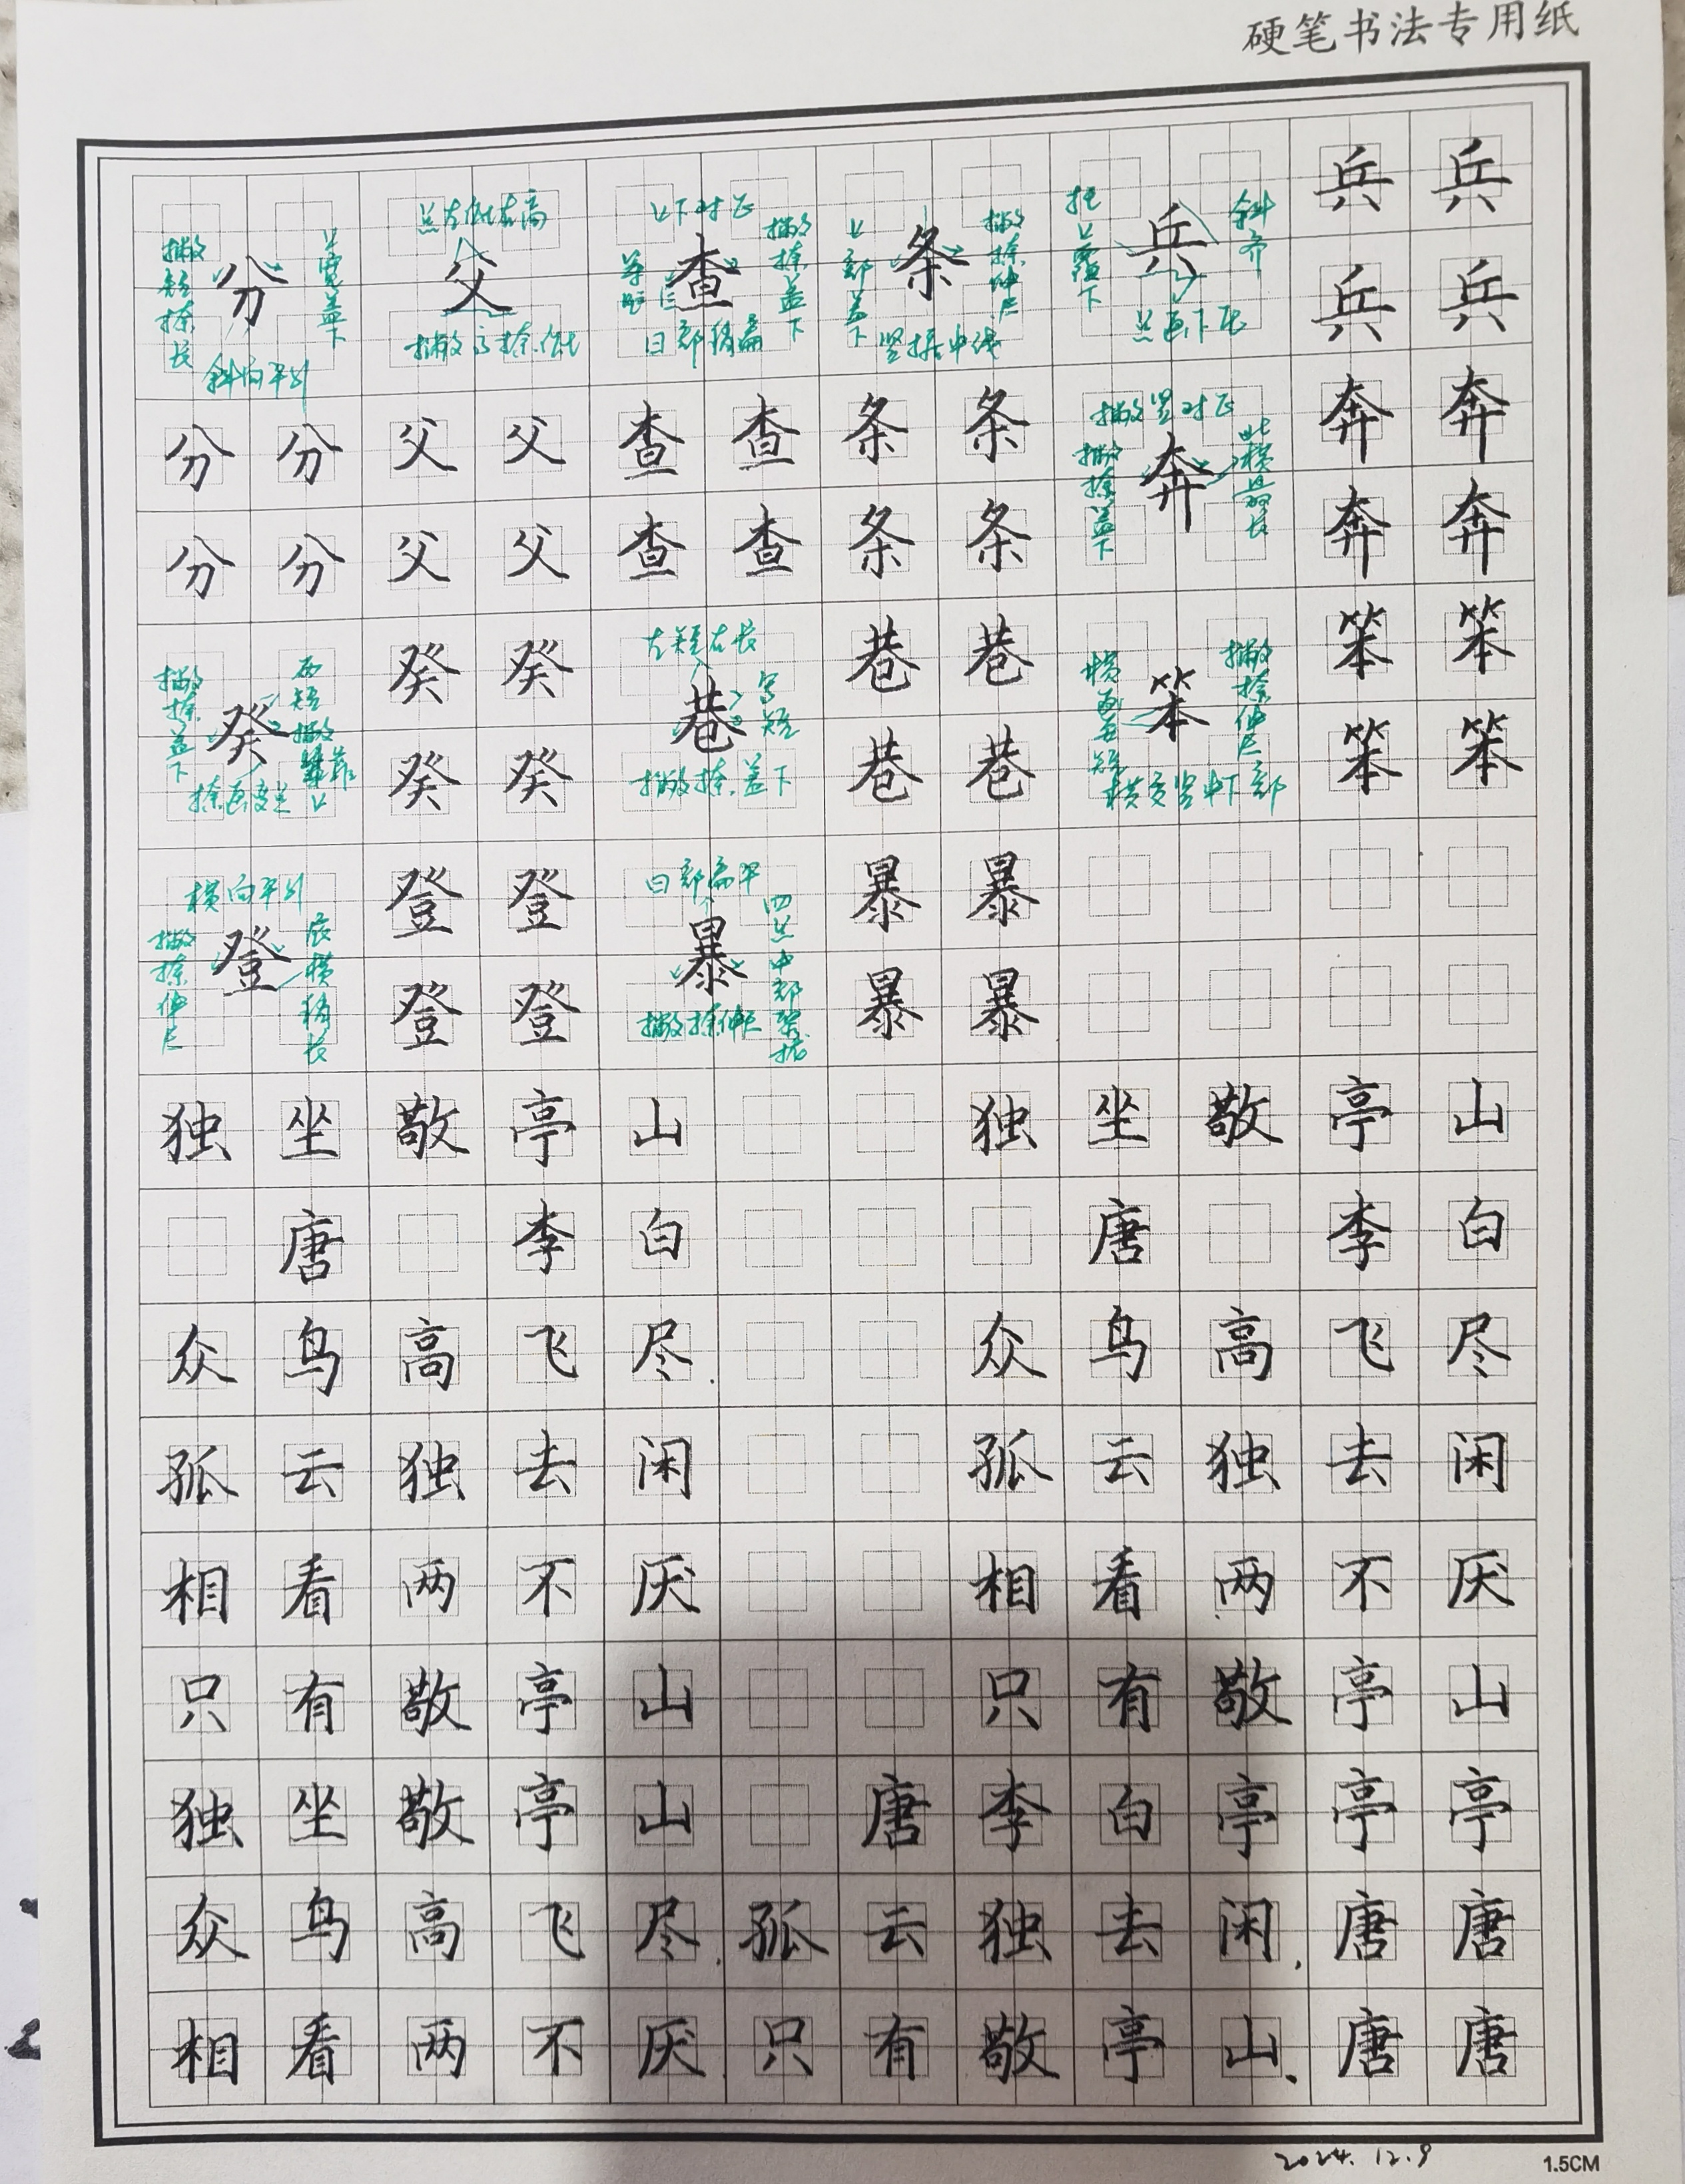 硬笔书法专用纸
兵 兵
点左低右高 上下对正 上部盖下 撇捺伸展 斜齐
撇短捺长 分 上宽盖下 父 查 撇捺盖下 条 兵 兵 兵
斜向平行 撇高捺低 日部稍扁 竖据中线 点画下压
分 分 父 父 查 查 条 条 撇竖对正 奔 奔
撇捺盖下 奔 此横最长
分 分 父 父 查 查 条 条 奔 奔
癸 癸 左短右长 巷 巷 笨 笨
撇捺盖下 癸 巷 写短 笨 撇捺伸展
癸 癸 撇捺盖下 巷 巷 横交竖中下部 笨 笨
横向平行 登 登 日部扁平 暴 暴
撇捺伸展 登 底横稍长 暴 四点中部聚拢
登 登 撇捺伸展 暴 暴
独 坐 敬 亭 山 独 坐 敬 亭 山
唐 李 白 唐 李 白
众 鸟 高 飞 尽. 众 鸟 高 飞 尽
孤 云 独 去 闲 孤 云 独 去 闲
相 看 两 不 厌 相 看 两 不 厌
只 有 敬 亭 山 只 有 敬 亭 山
独 坐 敬 亭 山 唐 李 白 亭 亭 亭
众 鸟 高 飞 尽. 孤 云 独 去 闲. 唐 唐
相 看 两 不 厌. 只 有 敬 亭 山. 唐 唐
2024.12.9
1.5CM